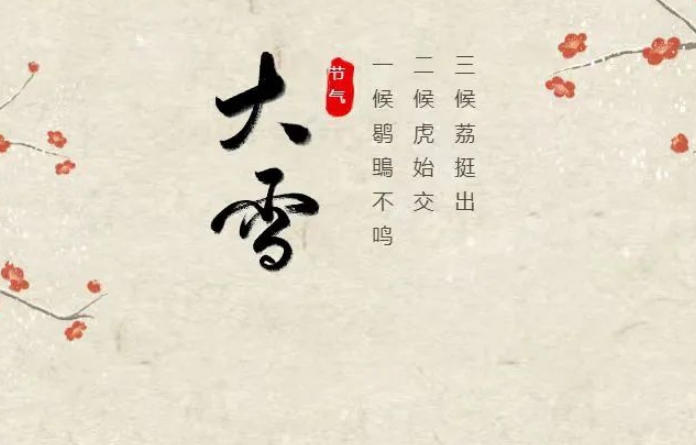 大雪
节气
一候鹖鴠不鸣
二候虎始交
三候荔挺出